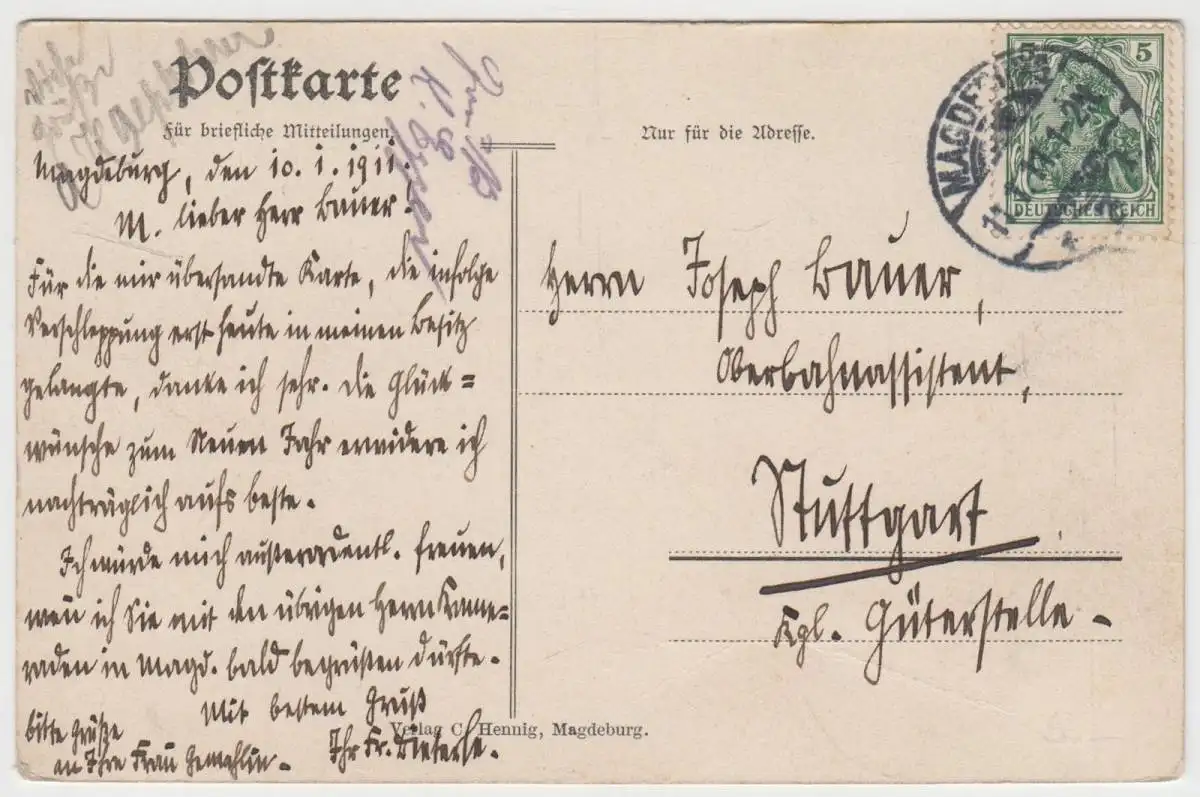 Postkarte
Für briefliche Mitteilungen.
Nur für die Adresse.
5
5
DEUTSCHES REICH
MAGDEBURG
Magdeburg, den 10.1.1911.
M. lieber Herr Bauer!
Für die mir übersandte Karte, die infolge
Verschleppung erst heute in meinen Besitz
gelangte, danke ich sehr. Die Glück=
wünsche zum Neuen Jahr erwidere ich
nachträglich aufs beste.
Ich würde mich außerordentl. freuen,
wenn ich Sie mit den übrigen Herrn Kame=
raden in Magd. bald begrüßen dürfte.
Mit bestem Gruß
Ihr Fr.
bitte Grüße
an Ihre Frau Gemahlin.
Herrn Joseph Bauer,
Oberbahnassistent,
Stuttgart.
Kgl. Güterstelle
Verlag C. Hennig, Magdeburg.